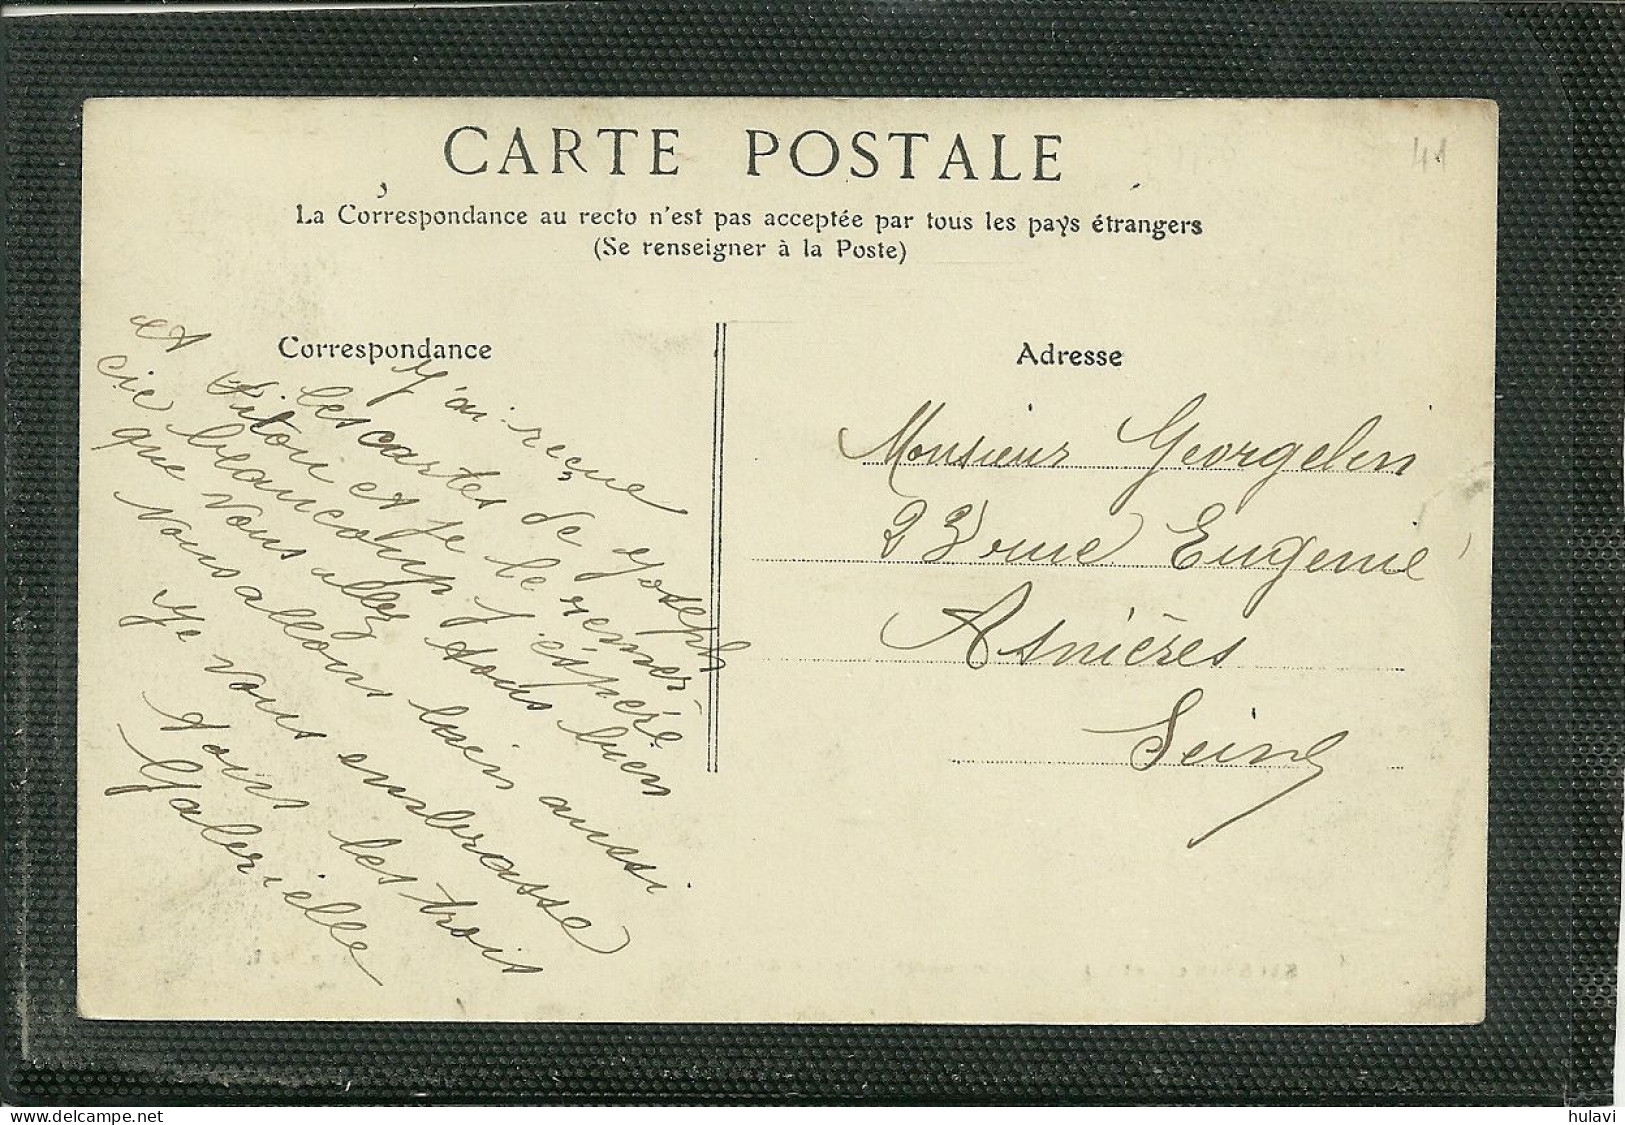 CARTE POSTALE
La Correspondance au recto n'est pas acceptée par tous les pays étrangers
(Se renseigner à la Poste)
41
Correspondance
J'ai reçue
les cartes de yoseph
et Titou et je le remer-
cie beaucoup J'éspère
que vous allez tous bien
nous allons bien aussi
Je vous embrasse
tous les trois
Gabrielle
Adresse
Monsieur Georgelin
23 rue Eugenie
Asnières
Seine
hulavi
delcampe.net